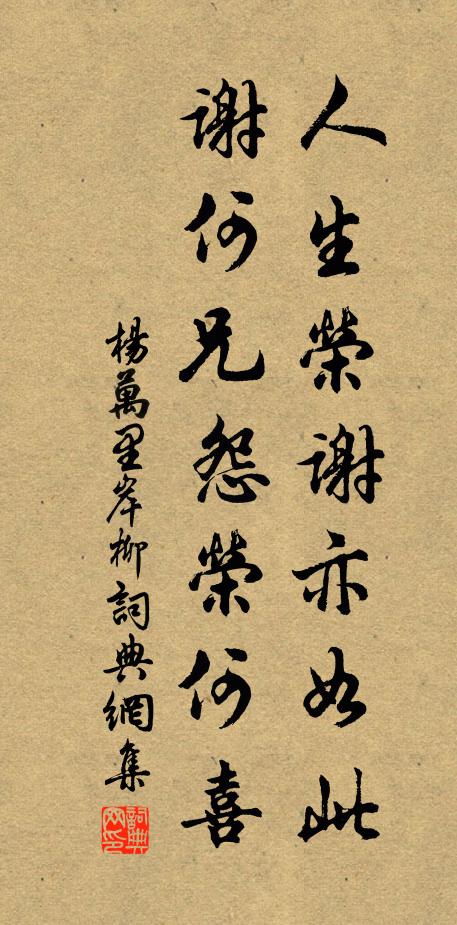 人生榮謝亦如此
謝何兄怨榮何喜
楊萬里岸柳詞典網集
詞典
网印